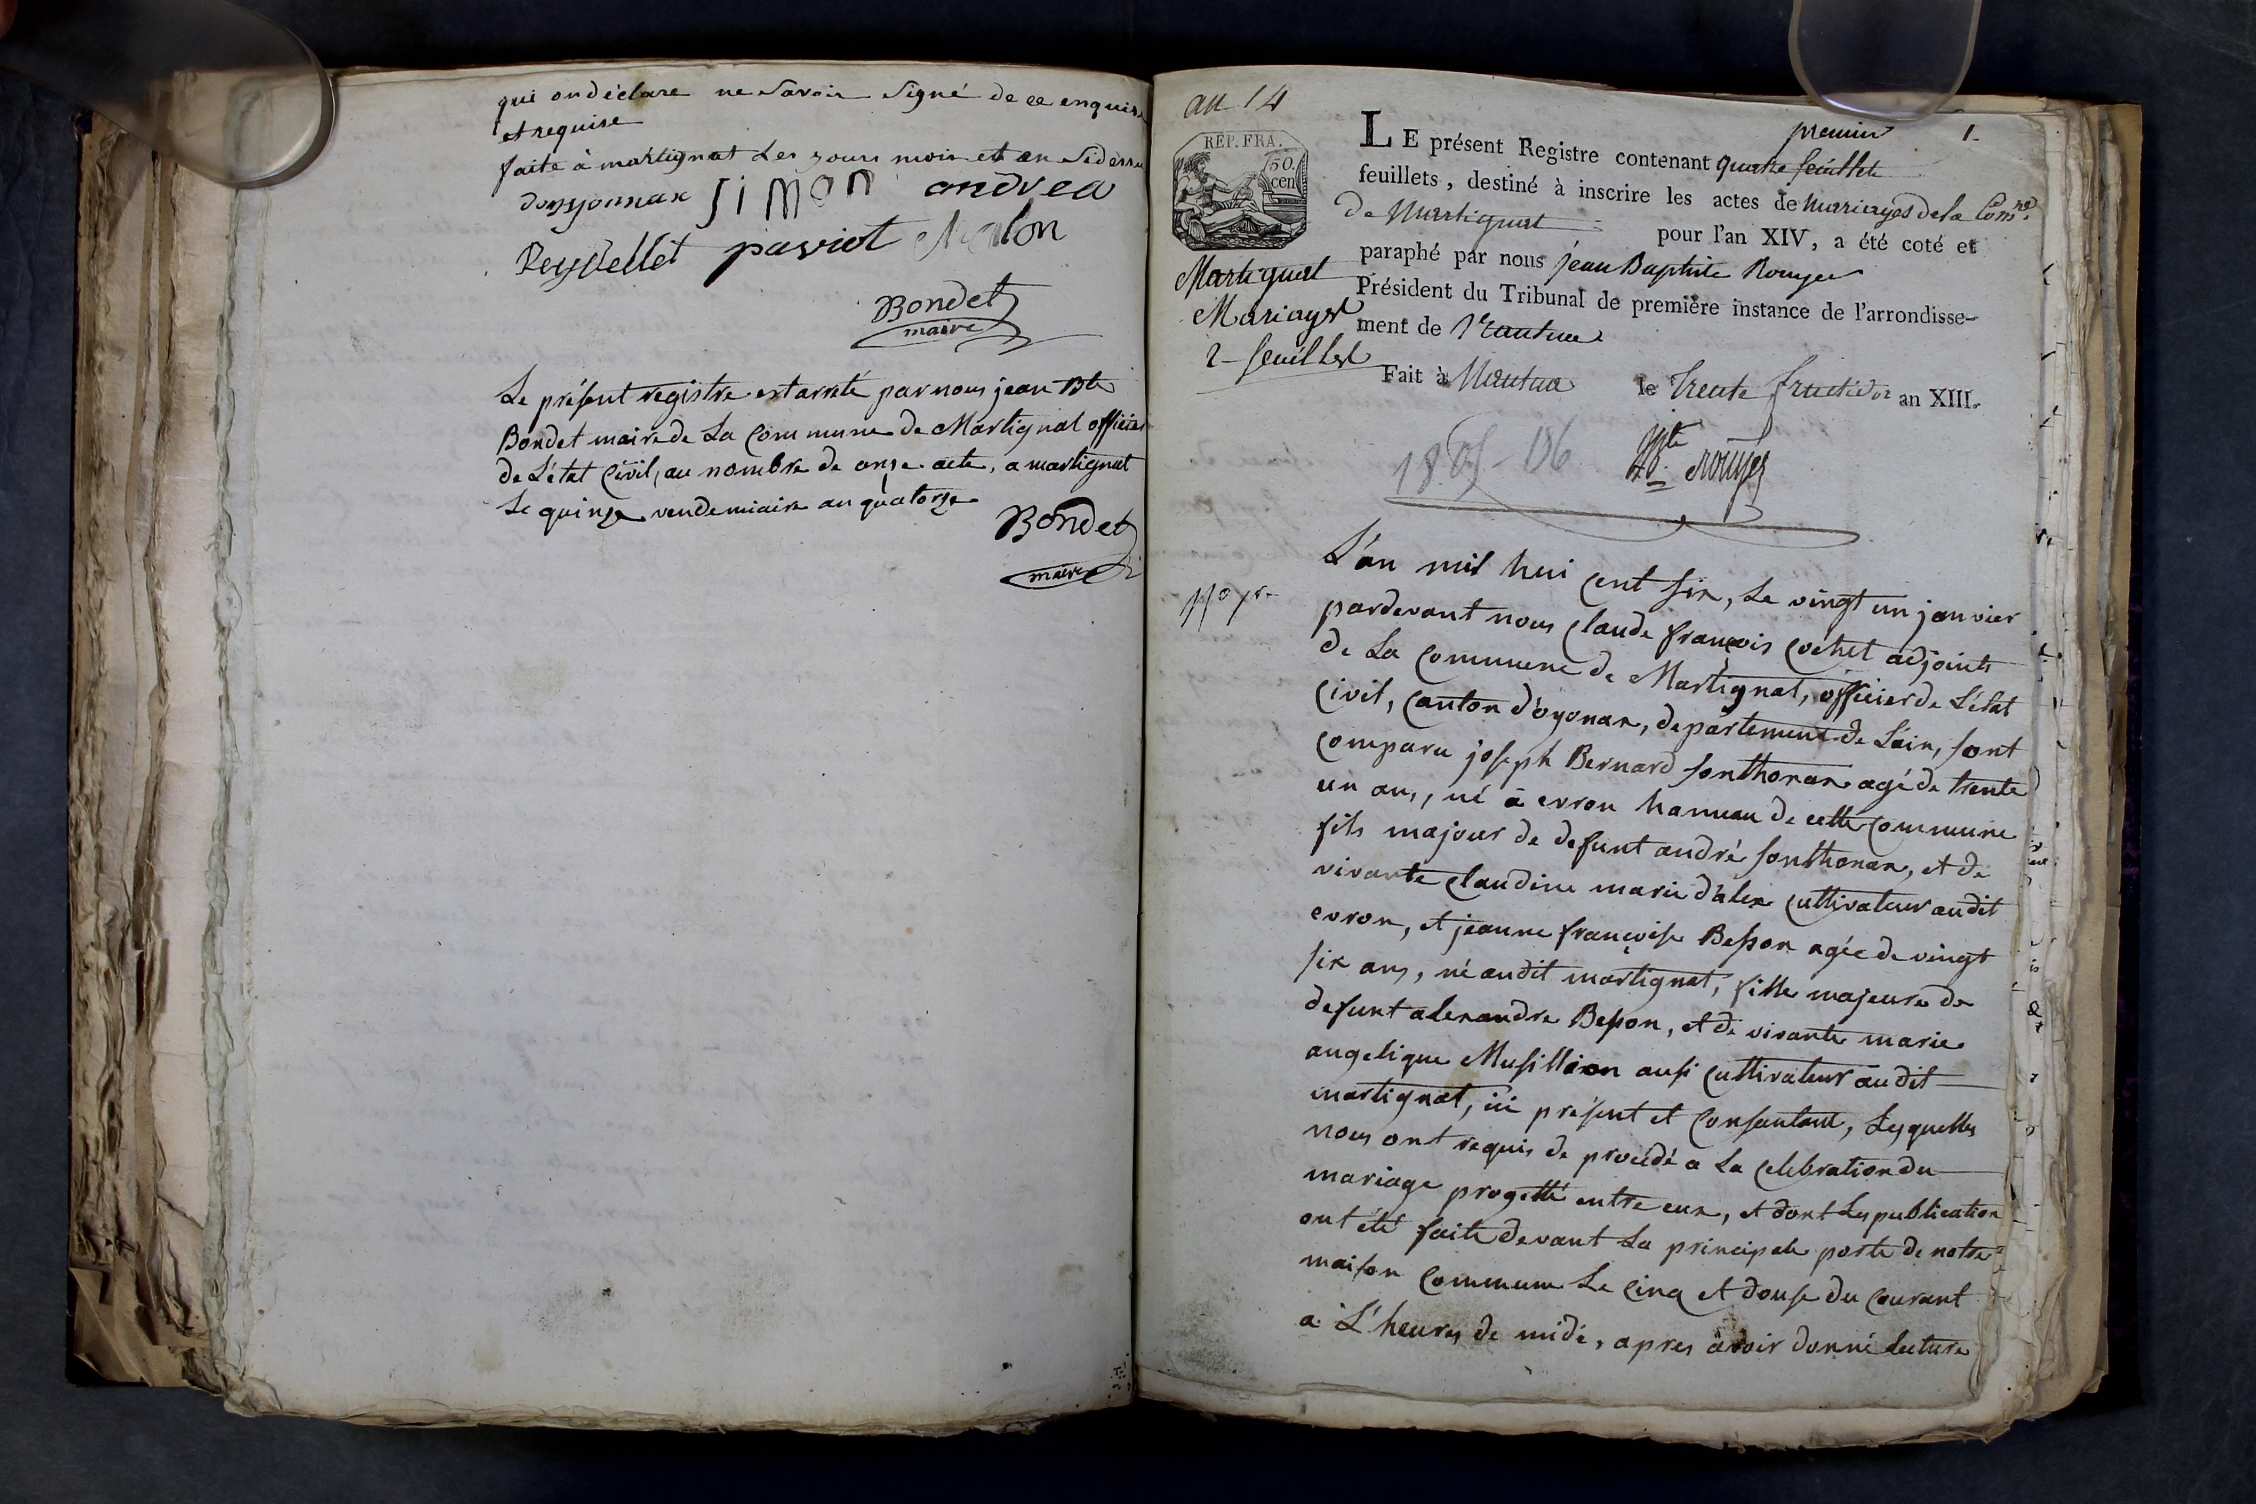 qui ondéclare ne Savoir Signé de ce enquis
et requise
faite à martignat Les jours mois et an Sidessu
donsyonnax Simon andrea
Reydellet paviot Malon
Bondet
maire
Le présent registre est arreté par nous jean Bte
Bondet maire de La Commune de Martignat officier
de L'état Civil, au nombre de onze acte, a martignat
Le quinze vendemiaire an quatorze
Bondet
maire
an 14
REP. FRA.
50.
cen
Martignat
Mariages
2 feuillet
premier 1.
LE présent Registre contenant quatre feuillet
feuillets, destiné à inscrire les actes de Mariages de la Comne.
de Martignat pour l'an XIV, a été coté et
paraphé par nous jean Baptiste Rouyer
Président du Tribunal de première instance de l'arrondisse-
ment de Nantua
Fait à Nantua le trente fructidor an XIII.
1805-06
Rouyer
L'an mil hui cent six, Le vingt un janvier
pardevant nous Claude françois Cochet adjoint
de La Commune de Martignat, officier de L'état
Civil, Canton d'oyonax, departement de Lain, sont
Comparu joseph Bernard sonthonax agé de trente
un ans, né à evron hameau de cette Commune
fils majeur de defunt andré sonthonax, et de
vivante Claudine marie d'alex Cultivateur audit
evron, et jeanne françoise Besson agée de vingt
six ans, né audit martignat, fille majeure de
defunt alexandre Besson, et de vivante marie
angelique Musillion ausi Cultivateur audit
martignat, ici présent et Consantant, Lesquelles
nous ont requis de procédé a La Celebration du
mariage progetté entre eux, et dont Les publication
ont été faite devant La principale porte de notre
maison Commune Le Cinq et douse du Courant
à L'heures de midi, apres avoir donné lecture